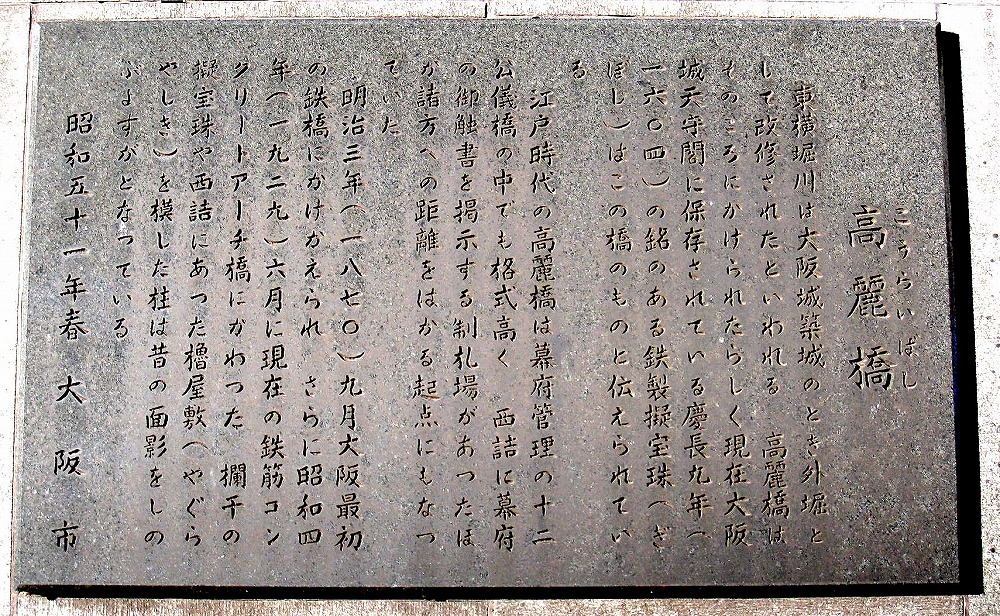 こうらいばし
高麗橋
東横堀川は大阪城築城のとき外堀と
して改修されたといわれる　高麗橋は
そのころにかけられたらしく現在大阪
城天守閣に保存されている慶長九年（
一六〇四）の銘のある鉄製擬宝珠（ぎ
ぼし）はこの橋のものと伝えられてい
る
江戸時代の高麗橋は幕府管理の十二
公儀橋の中でも格式高く　西詰に幕府
の御触書を掲示する制札場があったほ
か諸方への距離をはかる起点にもなっ
ていた
明治三年（一八七〇）九月大阪最初
の鉄橋にかけかえられ　さらに昭和四
年（一九二九）六月に現在の鉄筋コン
クリートアーチ橋にかわった　欄干の
擬宝珠や西詰にあった櫓屋敷（やぐら
やしき）を模した柱は昔の面影をしの
ぶよすがとなっている
昭和五十一年春　大阪市